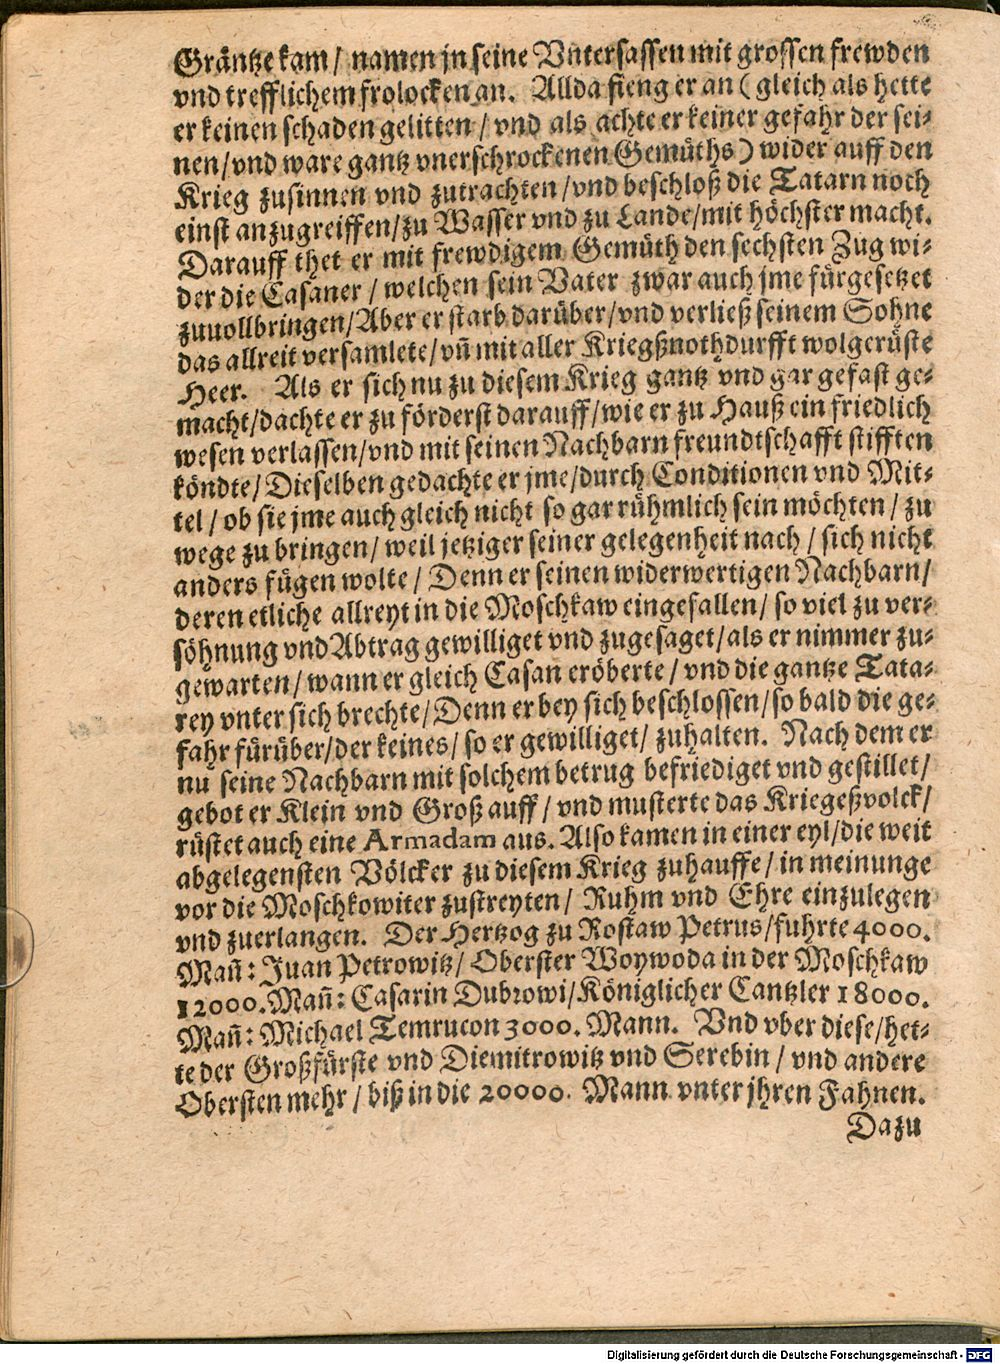 Gräntze kam / namen jn seine Vntersassen mit grossen frewden
vnd trefflichem frolocken an. Allda fieng er an ( gleich als hette
er keinen schaden gelitten / vnd als achte er keiner gefahr der sei-
nen/vnd ware gantz vnerschrockenen Gemüths) wider auff den
Krieg zusinnen vnd zutrachten /vnd beschloß die Tatarn noch
einst anzugreiffen/zu Wasser vnd zu Lande/mit höchster macht.
Darauff thet er mit frewdigem Gemüth den sechsten Zug wi-
der die Casaner / welchen sein Vater zwar auch jme fürgesetzet
zuuollbringen/Aber er starb darüber/vnd verließ seinem Sohne
das allreit versamlete/vñ mit aller Kriegßnothdurfft wolgerüste
Heer. Als er sich nu zu diesem Krieg gantz vnd gar gefast ge-
macht/dachte er zu förderst darauff/wie er zu Hauß ein friedlich
wesen verlassen/vnd mit seinen Nachbarn freundtschafft stifften
köndte/Dieselben gedachte er jme/durch Conditionen vnd Mit-
tel / ob sie jme auch gleich nicht so gar rühmlich sein möchten / zu
wege zu bringen/ weil jetziger seiner gelegenheit nach / sich nicht
anders fügen wolte / Denn er seinen widerwertigen Nachbarn/
deren etliche allreyt in die Moschkaw eingefallen/ so viel zu ver-
söhnung vnd Abtrag gewilliget vnd zugesaget/als er nimmer zu-
gewarten/wann er gleich Casan eröberte / vnd die gantze Tata-
rey vnter sich brechte/Denn er bey sich beschlossen/so bald die ge-
fahr fürüber/der keines/ so er gewilliget/ zuhalten. Nach dem er
nu seine Nachbarn mit solchem betrug befriediget vnd gestillet/
gebot er Klein vnd Groß auff / vnd musterte das Kriegeßvolck/
rüstet auch eine Armadam aus. Also kamen in einer eyl/die weit
abgelegensten Völcker zu diesem Krieg zuhauffe / in meinunge
vor die Moschkowiter zustreyten / Ruhm vnd Ehre einzulegen
vnd zuerlangen. Der Hertzog zu Rostaw Petrus/fuhrte 4000.
Mañ: Juan Petrowitz/ Oberster Woywoda in der Moschkaw
12000. Mañ: Casarin Dubrowi/Königlicher Cantzler 18000.
Mañ: Michael Temrucon 3000. Mann. Vnd vber diese/het-
te der Großfürste vnd Diemitrowitz vnd Serebin / vnd andere
Obersten mehr / biß in die 20000. Mann vnter jhren Fahnen.
Dazu
Digitalisierung gefördert durch die Deutsche Forschungsgemeinschaft - DFG